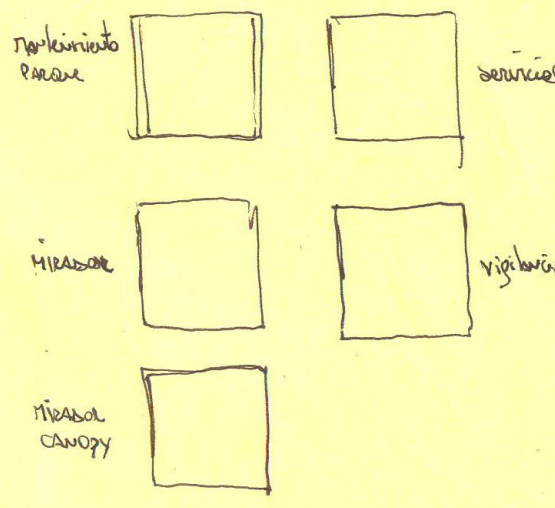 Mantenimiento
PARQUE
servicios
MIRADOR
vigilancia
MIRADOR
CANOPY